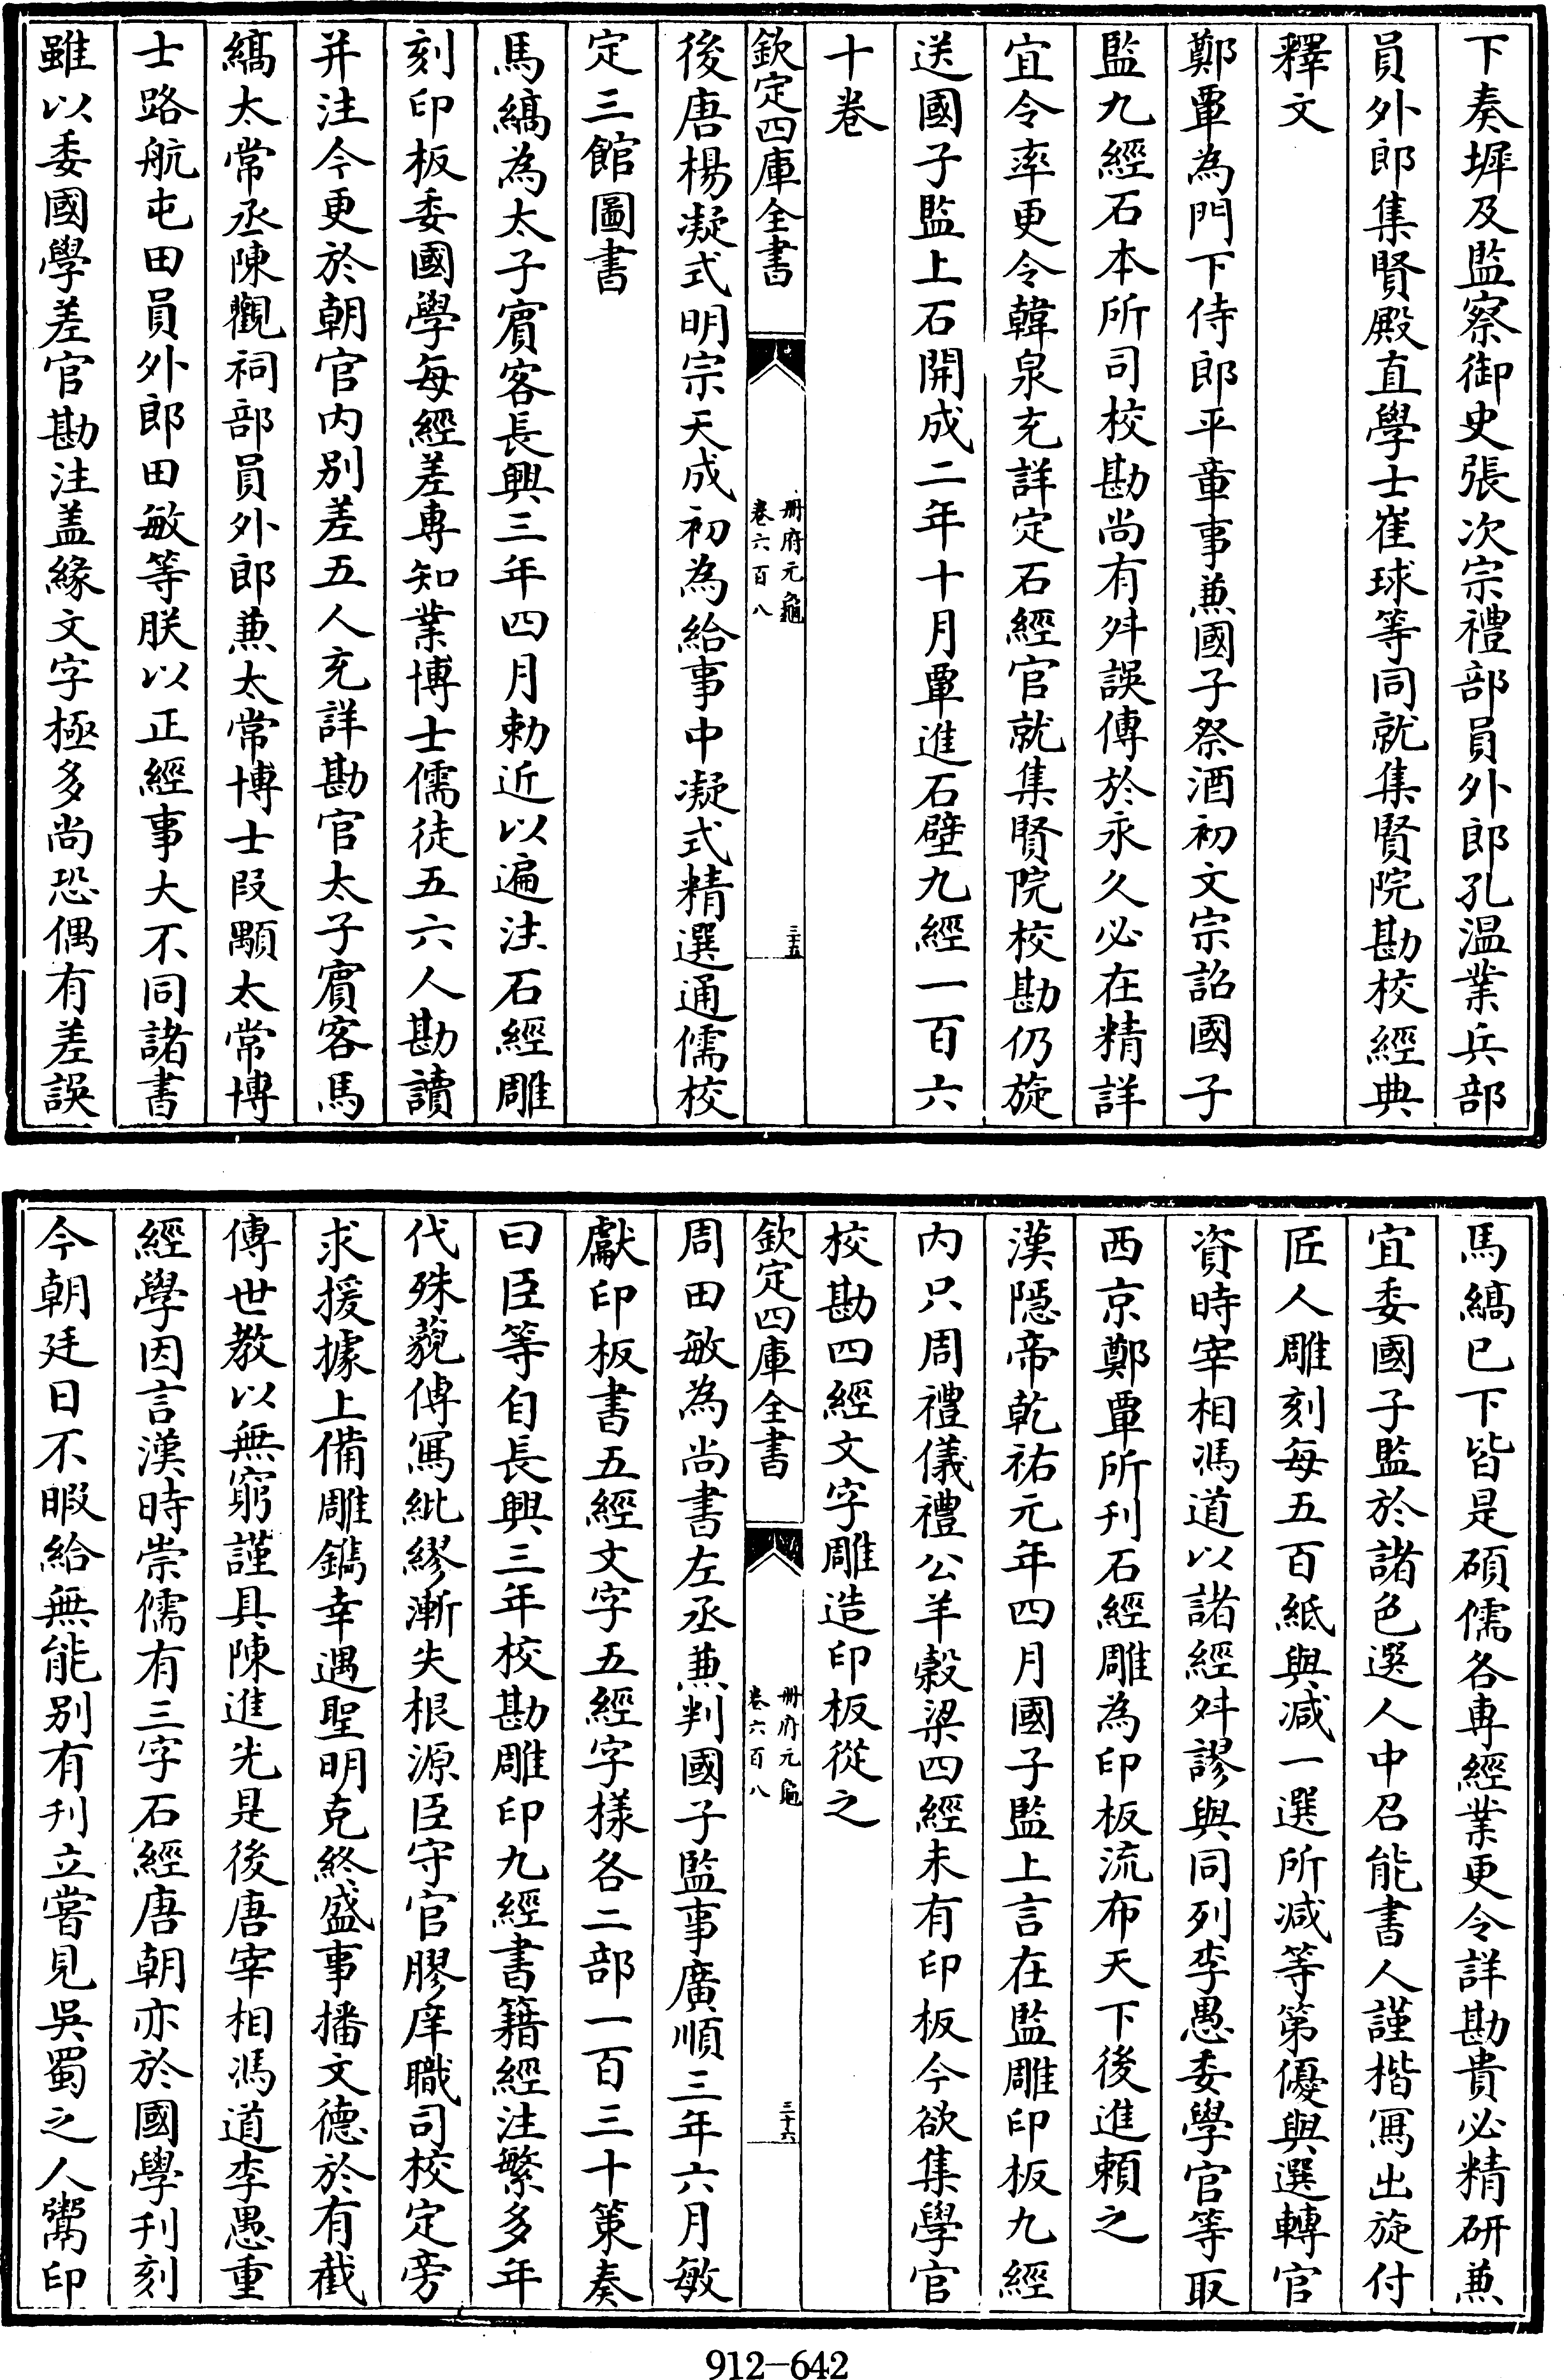 下奏墀及監察御史張次宗禮部員外郎孔温業兵部
員外郎集賢殿直學士崔球等同就集賢院勘校經典
釋文
鄭覃為門下侍郎平章事兼國子祭酒初文宗詔國子
監九經石本所司校勘尚有舛誤傳於永久必在精詳
宜令率更令韓泉充詳定石經官就集賢院校勘仍旋
送國子監上石開成二年十月覃進石壁九經一百六
十卷
欽定四庫全書
册府元龜
卷六百八
三十五
後唐楊凝式明宗天成初為給事中凝式精選通儒校
定三館圖書
馬縞為太子賓客長興三年四月勅近以遍注石經雕
刻印板委國學每經差專知業博士儒徒五六人勘讀
并注今更於朝官内别差五人充詳勘官太子賓客馬
縞太常丞陳觀祠部員外郎兼太常博士段顒太常博
士路航屯田員外郎田敏等朕以正經事大不同諸書
雖以委國學差官勘注盖緣文字極多尚恐偶有差誤
馬縞已下皆是碩儒各專經業更令詳勘貴必精研兼
宜委國子監於諸色選人中召能書人謹楷寫出旋付
匠人雕刻每五百紙與减一選所减等第優與選轉官
資時宰相馮道以諸經舛謬與同列李愚委學官等取
西京鄭覃所刊石經雕為印板流布天下後進頼之
漢隱帝乾祐元年四月國子監上言在監雕印板九經
内只周禮儀禮公羊穀梁四經未有印板今欲集學官
校勘四經文字雕造印板從之
欽定四庫全書
册府元龜
卷六百八
三十六
周田敏為尚書左丞兼判國子監事廣順三年六月敏
獻印板書五經文字五經字樣各二部一百三十策奏
曰臣等自長興三年校勘雕印九經書籍經注繁多年
代殊藐傳寫紕繆漸失根源臣守官膠庠職司校定旁
求援據上備雕鐫幸遇聖明克終盛事播文德於有截
傳世教以無窮謹具陳進先是後唐宰相馮道李愚重
經學因言漢時崇儒有三字石經唐朝亦於國學刊刻
今朝廷日不暇給無能别有刊立嘗見吳蜀之人鬻印
912—642